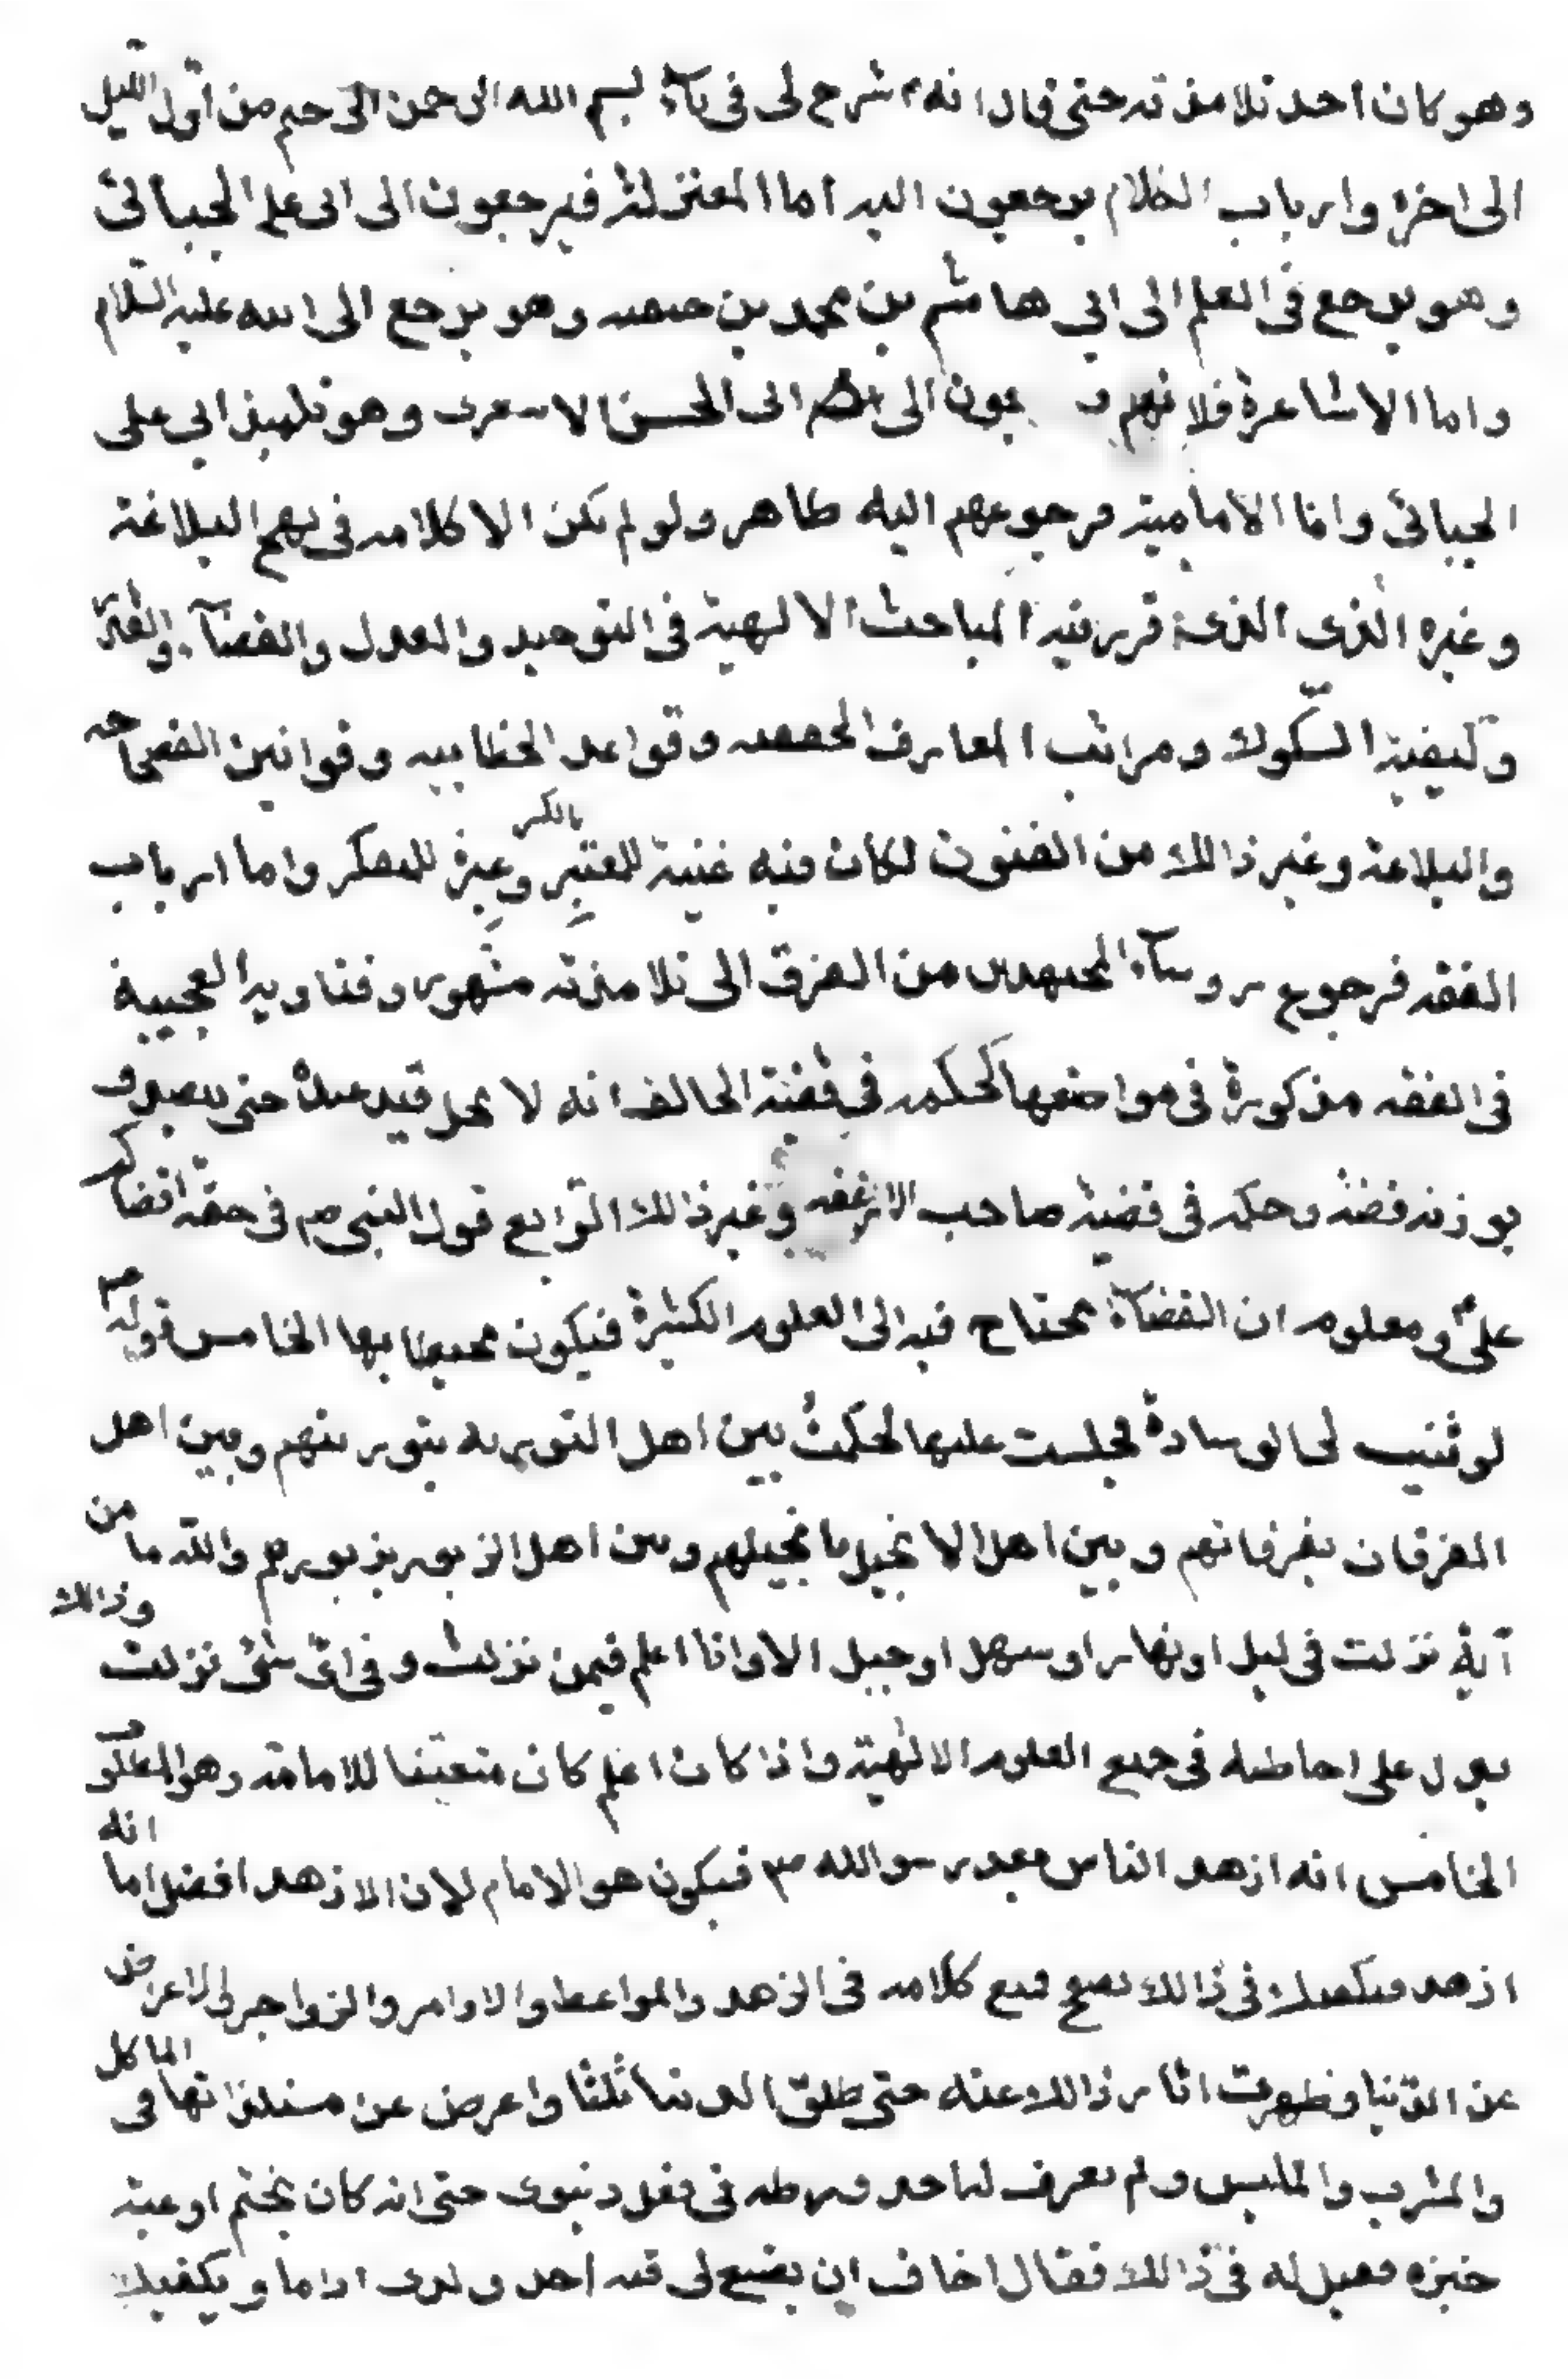 وهو كان احد تلامذته حتى قال انه شرح لى فى باء بسم الله الرحمن الرحيم من اول الليل
الى اخره وارباب الكلام يرجعون اليه اما المعتزلة فيرجعون الى ابى على الجبائى
وهو يرجع فى العلم الى ابي هاشم بن محمد بن حنفيه وهو يرجع الى ابيه عليه السلام
واما الاشاعرة فلانهم يرجعون الى ابى الحسن الاشعرى وهو تلميذ ابي على
الجبائى واما الامامية فرجوعهم اليه ظاهر ولو لم يكن الا كلامه فى نهج البلاغة
وغيره الذى الذى قرر فيه المباحث الالهية فى التوحيد والعدل والقضآء والقدر
وكيفية السلوك ومراتب المعارف الحقيقيه وقواعد الخطابيه وقوانين الفصاحه
والبلاغة وغير ذالك من الفنون لكان فيه غنية للمعتبِر وعِبرة للمفكر واما ارباب
بالكسر
الفقه فرجوع روسآء المجتهدين من الفرق الى تلامذته مشهور وفتاويه العجيبة
فى الفقه مذكورة فى مواضعها كحكمه فى قضية الحالف انه لا يحل قيد عبده حتى يتصدق
بوزنه فضة وحكمه فى قضية صاحب الارغفه وغير ذالك الرّابع قول النبى ص فى حقه اقضاكم
علىّ ومعلوم ان القضآء يحتاج فيه الى العلوم الكثيرة فيكون محيطا بها الخامس قوله ع
لو ثنيت لى الوسادة فجلست عليها لحكمتُ بين اهل التورية بتوريتهم وبين اهل
الفرقان بفرقانهم و بين اهل الانجيل بانجيلهم وبين اهل الزبور بزبورهم والله ما من
آية نزلت فى ليل او نهار او سهل او جبل الا وانا اعلم فيمن نزلت وفى اىّ شىء نزلت وذالك
يدل على احاطته فى جميع العلوم الالهية واذا كان اعلم كان متعيّنا للامامة وهو المطلوب
الخامس انه ازهد الناس بعد رسول الله ص فيكون هو الامام لان الازهد افضل اما انه
ازهد فيكفيك فى ذالك تصفح كلامه فى الزهد والمواعظ والاوامر والزواجر والاعراض
عن الدّنيا وظهرت اثار ذالك عنه حتى طلّق الدنيا ثلثا واعرض عن مستلذاتها فى الماكل
والمشرب والملبس ولم يعرف له احد ورطه فى فعل دنيوى حتى انه كان يختم اوعية
خبزه فقيل له فى ذالك فقال اخاف ان يضع لى فيه احد ولدى اداما ويكفيك